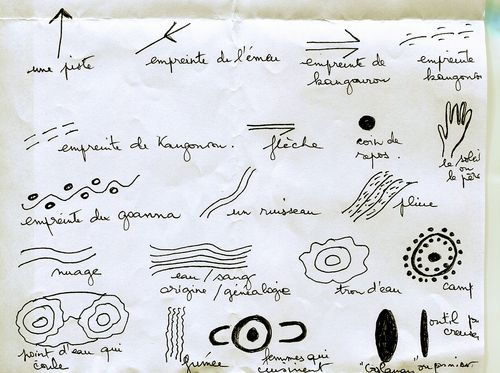 une piste
empreinte de l'émeu
empreinte de
kangourou
empreinte
kangourou
empreinte de Kangourou.
flèche
coin de
repos.
le soleil
ou
le père
empreinte du goanna
un ruisseau
pluie
nuage
eau/sang
origine/généalogie
trou d'eau
camp
point d'eau qui
coule
fumée
femmes qui
cuisinent
ou panier
outil
creuser